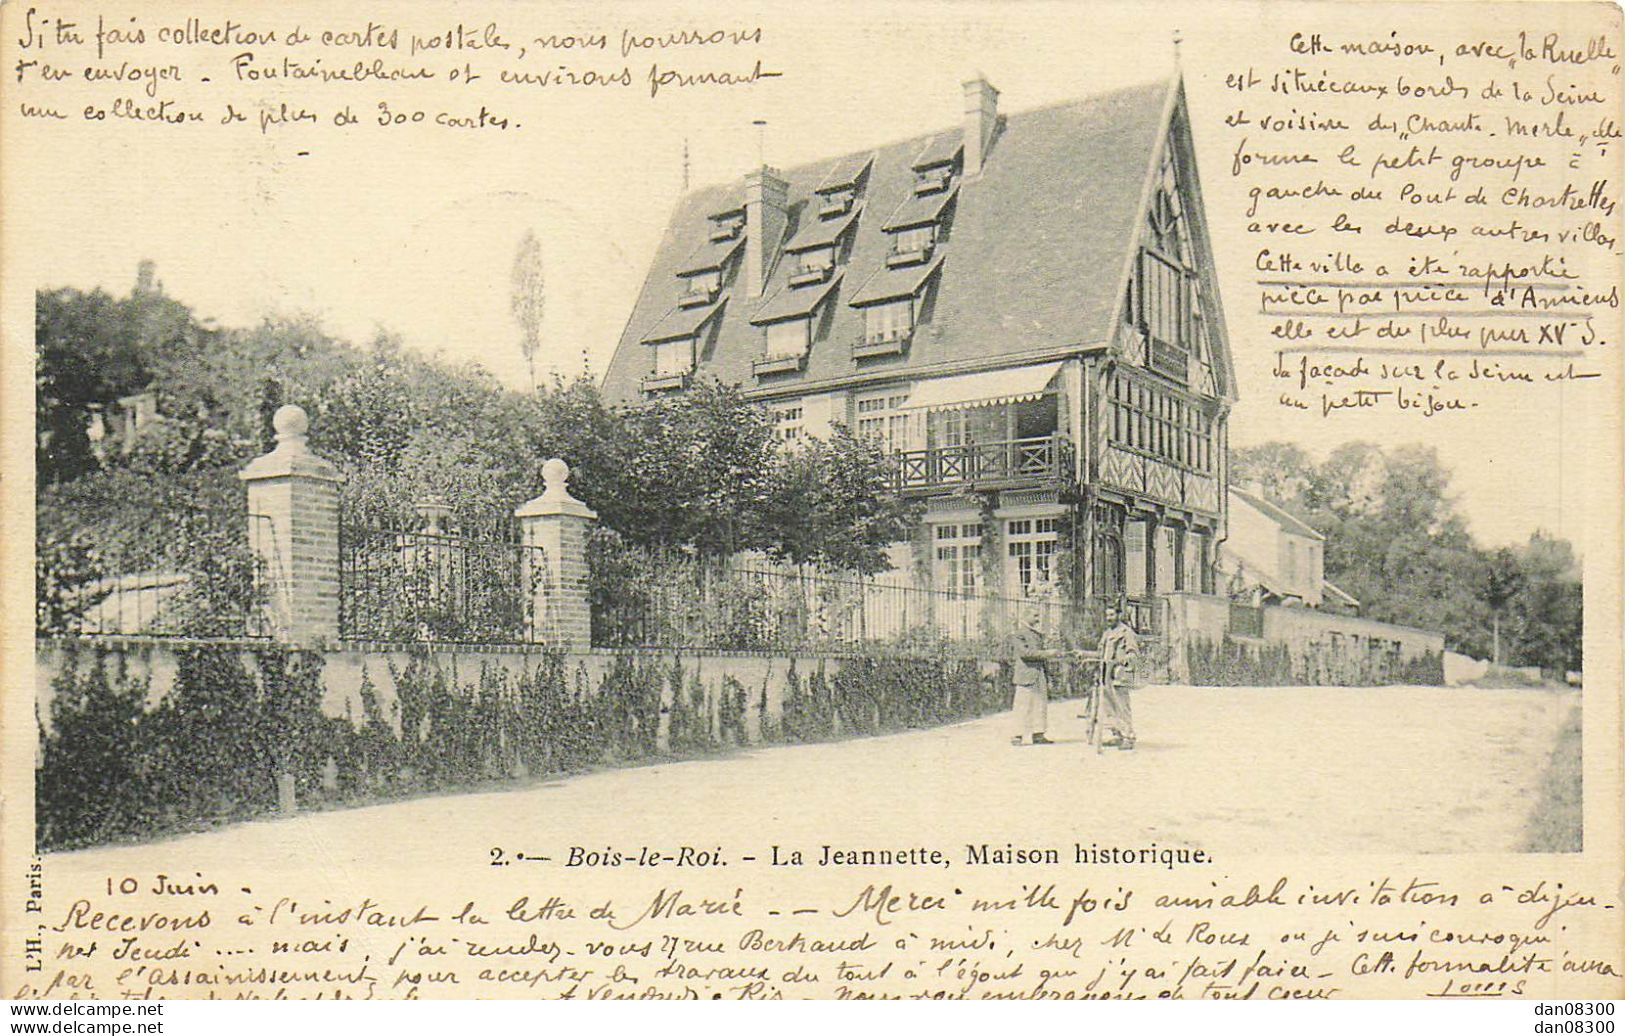 Si tu fais collection de cartes postales, nous pourrons
t'en envoyer - Fontainebleau et environs formant
une collection de plus de 300 cartes.
Cette maison, avec "la Ruelle"
est située aux bords de la Seine
et voisine du "Chante-Merle" elle
forme le petit groupe à
gauche du Pont de Chartrettes
avec les deux autres villas.
Cette villa a été rapportée
pièce par pièce d'Amiens
elle est du plus pur XVe S.
Sa façade sur la Seine est
un petit bijou.
2. — Bois-le-Roi. - La Jeannette, Maison historique.
L'H., Paris.
10 Juin -
Recevons à l'instant la lettre de Marie -- Merci mille fois aimable invitation à déjeu-
ner Jeudi .... mais, j'ai rendez-vous rue Bertrand à midi, chez Mr Le Roux, où je suis convoqué
par l'Assainissement, pour accepter les travaux du tout à l'égout que j'y ai fait faire - Cette formalité aura
A Vendredi nous vous embrassons de tout coeur
Louis
dan08300
dan08300
dan08300
dan08300